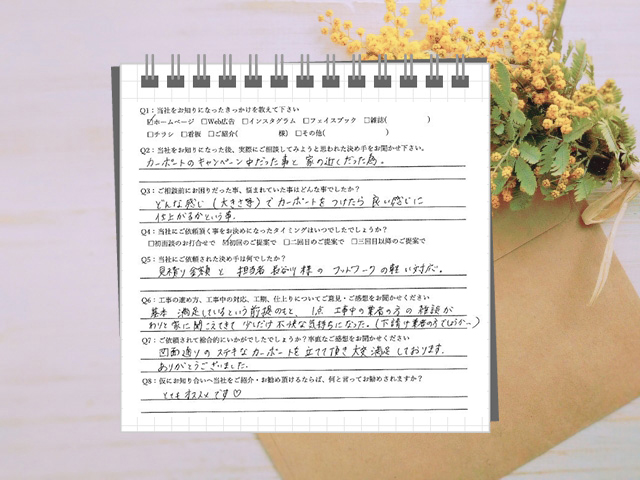 Q1：当社をお知りになったきっかけを教えて下さい
☑ホームページ □Web広告 □インスタグラム □フェイスブック □雑誌( )
□チラシ □看板 □ご紹介( 様) □その他( )
Q2：当社をお知りになった後、実際にご相談してみようと思われた決め手をお聞かせ下さい。
カーポートのキャンペーン中だった事と 家の近くだった為。
Q3：ご相談前にお困りだった事、悩まれていた事はどんな事でしたか？
どんな感じ（大きさ等）で カーポートを つけたら 良い感じに
仕上がるかという事。
Q4：当社にご依頼頂く事をお決めになったタイミングはいつでしたでしょうか？
□初再談のお打合せで ☑初回のご提案で □二回目のご提案で □三回目以降のご提案で
Q5：当社にご依頼された決め手は何でしたか？
見積り金額 と 担当者 長谷川 様 の フットワークの軽い対応。
Q6：工事の進め方、工事中の対応、工期、仕上りについてご意見・ご感想をお聞かせください
基本 満足しているという前提のもと、1点 工事中の業者の方の 雑談が
わりと家に聞こえてきて 少しだけ不快な気持ちになった。（下請け業者の方でしょうか…）
Q7：ご依頼されて総合的にいかがでしたでしょうか？率直なご感想をお聞かせください
図面通りの ステキな カーポートを 立てて頂き 大変 満足 しております。
ありがとうございました。
Q8：仮にお知り合いへ当社をご紹介・お勧め頂けるならば、何と言ってお勧めされますか？
とてもオススメです♡